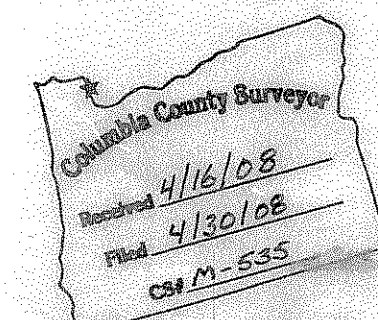 Columbia County Surveyor
Received 4/16/08
Filed 4/30/08
CS# M-535